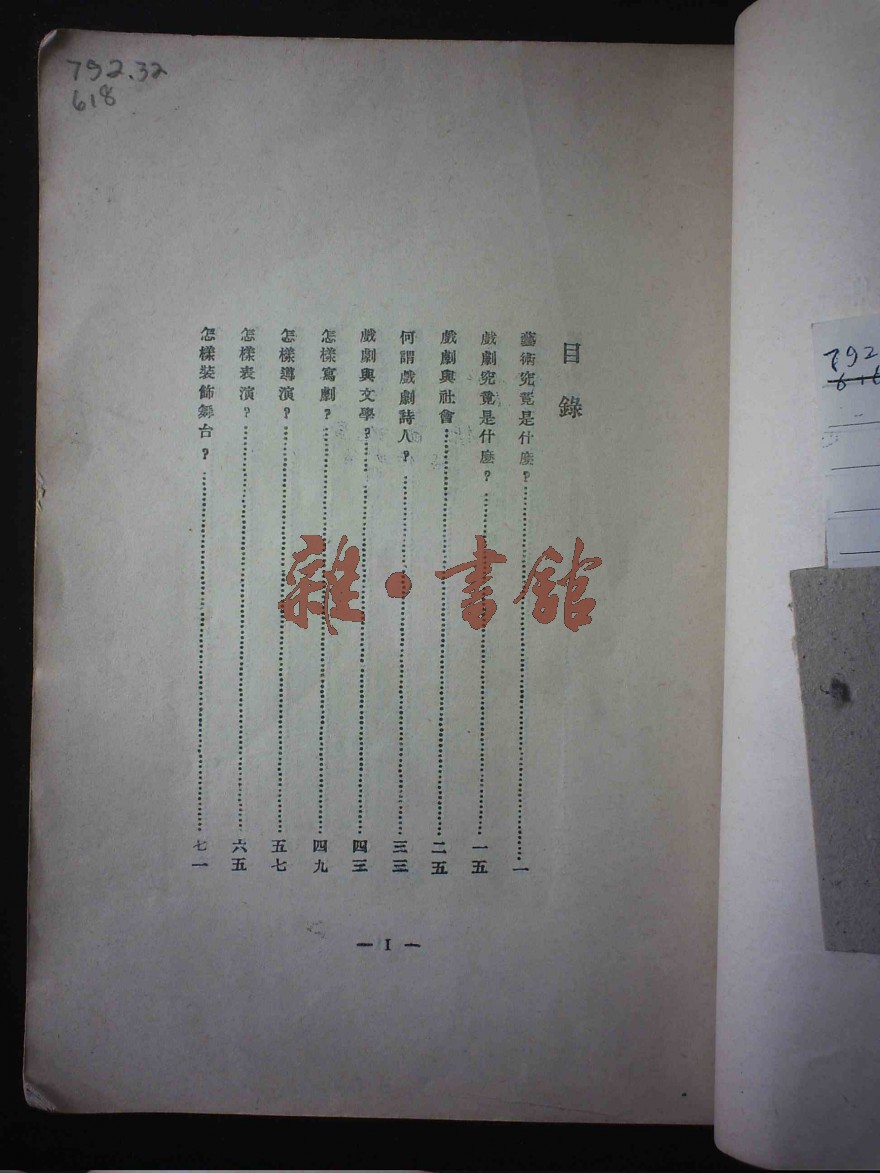 792.32
618
目錄
藝術究竟是什麼？……一
戲劇究竟是什麼？……一五
戲劇與社會……二五
何謂戲劇詩人？……三三
戲劇與文學？……四三
怎樣寫劇？……四九
怎樣導演？……五七
怎樣表演？……六五
怎樣裝飾舞台？……七一
— I —
雜·書館
792